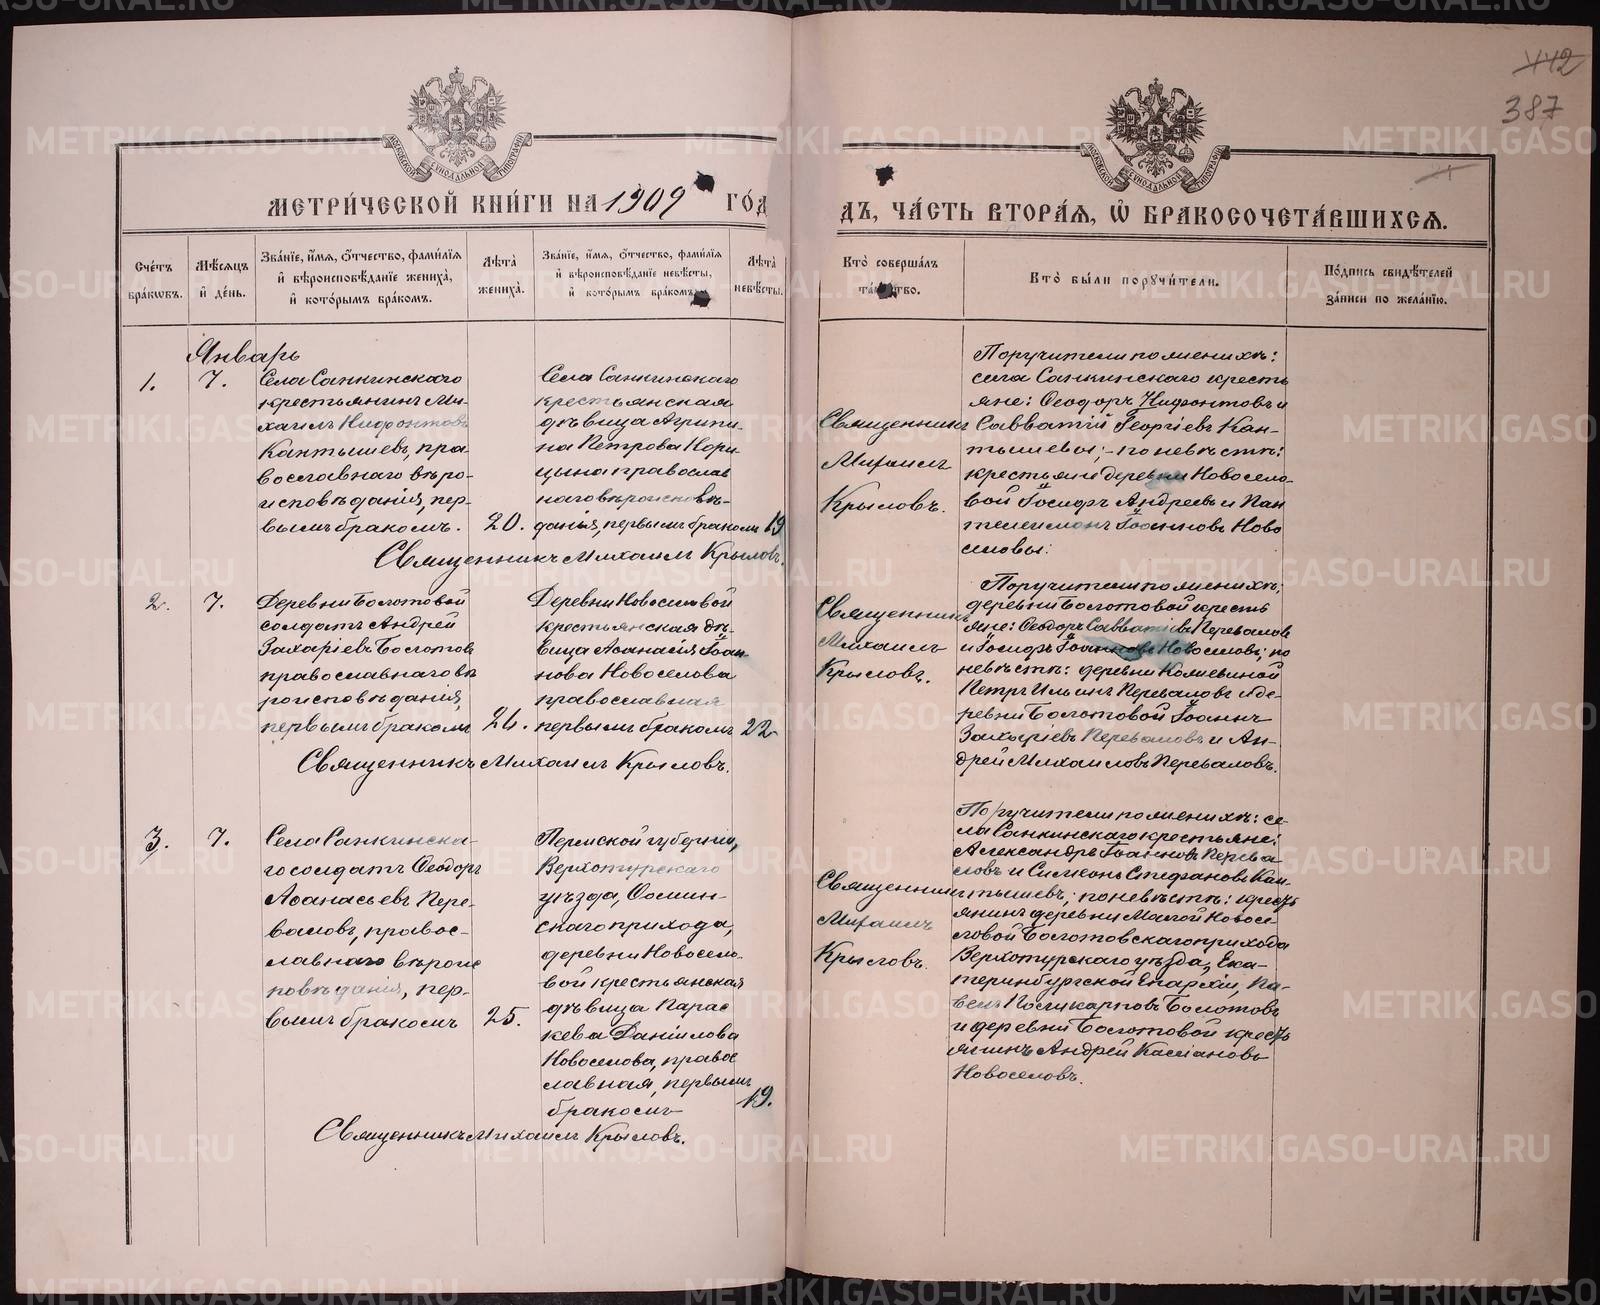 442
387
МОСКОВСКОЙ СѴНОДАЛЬНОЙ ТИПОГРАФІИ
МОСКОВСКОЙ СѴНОДАЛЬНОЙ ТИПОГРАФІИ
МЕТРИ́ЧЕСКОЙ КНИ́ГИ НА 1909 ГО́Д
ДЪ, ЧА́СТЬ ВТОРА́Я, Ѽ БРАКОСОЧЕТА́ВШИХСЯ.
Сче́тъ бра́кωвъ.
Мѣ́сяцъ и҆ де́нь.
Зва́нїе, и҆́мя, ѻ҆́тчество, фами́лїя и҆ вѣроисповѣ́данїе жениха̀, и҆ кото́рымъ бра́комъ.
Лѣ́та̀ жениха̀.
Зва́нїе, и҆́мя, ѻ҆́тчество, фами́лїя и҆ вѣроисповѣ́данїе невѣ́сты, и҆ кото́рымъ бра́комъ.
Лѣ́та̀ невѣ́сты.
Кто̀ соверша́лъ та́инство.
Кто̀ бы́ли поручи́тели.
По́дпись свидѣ́телей за́писи по жела́нїю.
Январь
1.
7.
Села Санкинскаго
крестьянинъ Ми-
хаилъ Нифонтовъ
Кантышевъ, пра
вославнаго вѣро-
исповѣданія, пер-
вымъ бракомъ.
20.
Села Санкинскаго
крестьянская
дѣвица Агрипи-
на Петрова Нори
цына православ
наго вѣроисповѣ-
данія, первымъ бракомъ
19
Священникъ
Михаилъ
Крыловъ.
Поручители по женихѣ:
села Санкинскаго кресть
яне: Ѳеодоръ Нифонтовъ и
Савватій Георгіевъ Кан-
тышевы; - по невѣстѣ:
крестьяне деревни Новосело-
вой Іосифъ Андреевъ и Пан
телеимонъ Іоанновъ Ново
селовы.
Священникъ Михаилъ Крыловъ.
2.
7.
Деревни Болотовой
солдатъ Андрей
Захаріевъ Болотовъ
православнаго вѣ
роисповѣданія,
первымъ бракомъ
24.
Деревни Новоселовой
крестьянская дѣ-
вица Аѳанасія Іоан-
нова Новоселова
православная
первымъ бракомъ
22
Священникъ
Михаилъ
Крыловъ.
Поручители по женихѣ:
деревни Болотовой кресть
яне: Ѳеодоръ Савватіевъ Переваловъ
и Іосифъ Іоанновъ Новоселовъ; по
невѣстѣ: деревни Комельиной
Петръ Ильинъ Переваловъ и де-
ревни Болотовой Іоаннъ
Захаріевъ Переваловъ и Ан-
дрей Михаиловъ Переваловъ.
Священникъ Михаилъ Крыловъ.
3.
7.
Села Санкинска-
го солдатъ Ѳеодоръ
Аѳанасьевъ Пере-
валовъ, правос-
лавнаго вѣроис
повѣданія, пер-
вымъ бракомъ
25.
Пермской губерніи,
Верхотурскаго
уѣзда,
скаго прихода,
деревни Новосело-
вой крестьянская
дѣвица Парас
кева Даніилова
Новоселова, правос
лавная, первымъ
бракомъ
19.
Священникъ
Михаилъ
Крыловъ.
Поручители по женихѣ: се-
ла Санкинскаго крестьяне:
Александръ Іоанновъ Перева
ловъ и Симеонъ Стефановъ Кан-
тышевъ; по невѣстѣ: кресть
янинъ деревни Малой Новосе-
ловой Болотовскаго прихода
Верхотурскаго уѣзда, Ека-
теринбургской Епархіи, Па-
велъ Поликарповъ Болотовъ
и деревни Болотовой кресть
янинъ Андрей Кассіановъ
Новоселовъ.
Священникъ Михаилъ Крыловъ.
METRIKI.GASO-URAL.RU